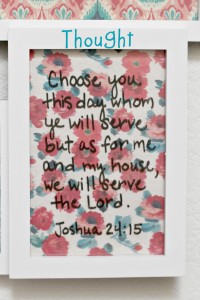 Thought
Choose you
this day whom
ye will serve
but as for me
and my house,
we will serve
the Lord.
Joshua 24:15